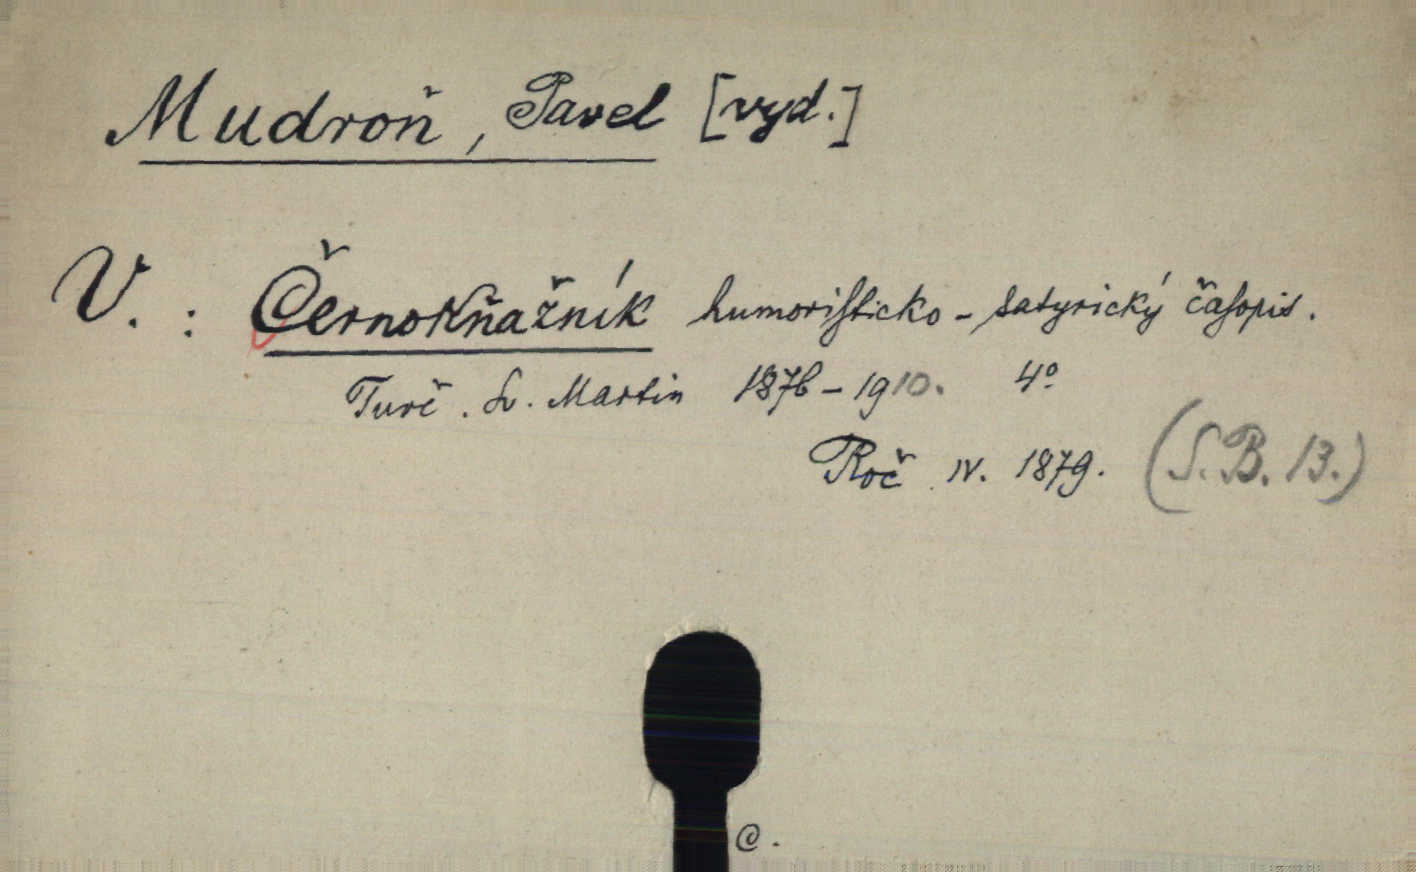 Mudroň, Pavel [vyd.]
V. : Černokňažník humoristicko-satyrický časopis.
Turč. Sv. Martin 1876-1910. 4°
Roč IV. 1879. (S.B. 13.)
C.